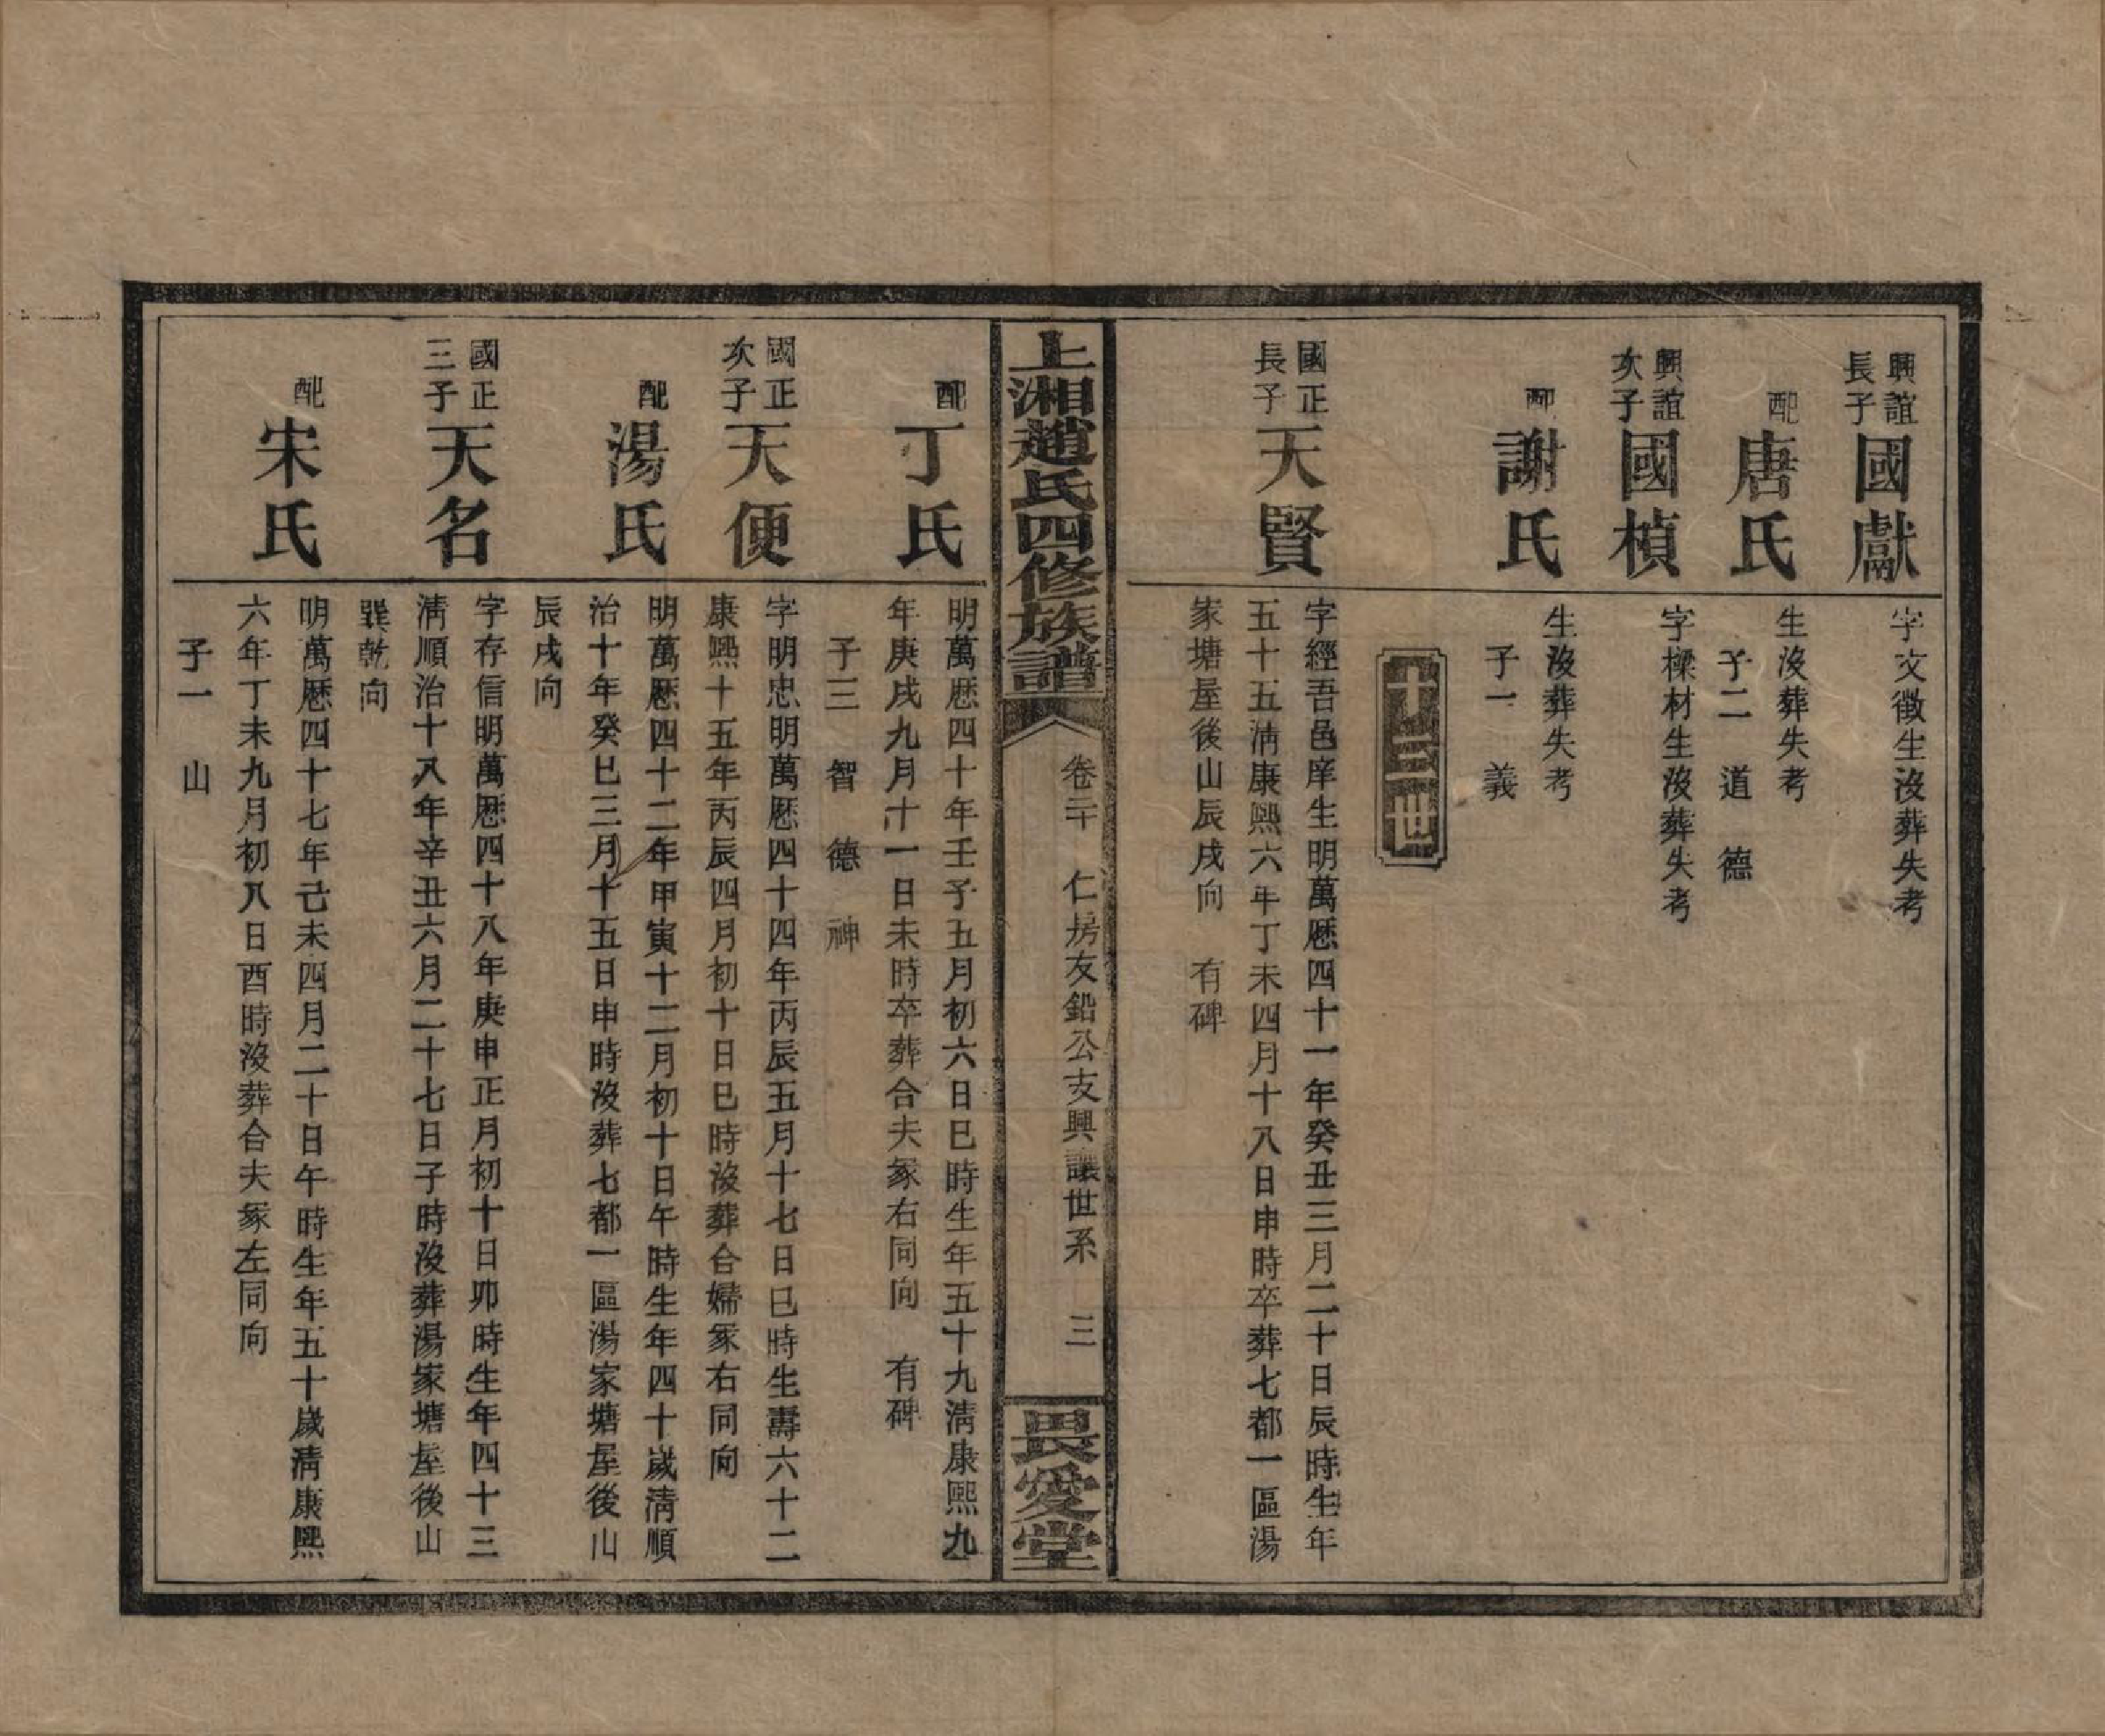 興誼
長子
國獻
字文徵生沒葬失考
配
唐氏
生沒葬失考
子二　道　德
興誼
次子
國楨
字樑材生沒葬失考
配
謝氏
生沒葬失考
子一　義
十三世
國正
長子
天賢
字經吾邑庠生明萬歷四十一年癸丑三月二十日辰時生年
五十五淸康熙六年丁未四月十八日申時卒葬七都一區湯
家塘屋後山辰戌向　有碑
上湘趙氏四修族譜
卷二十　仁房友鉛公支興讓世系　三
畏愛堂
配
丁氏
明萬歷四十年壬子五月初六日巳時生年五十九淸康熙九
年庚戌九月十一日未時卒葬合夫冢右同向　有碑
子三　智　德　神
國正
次子
天便
字明忠明萬歷四十四年丙辰五月十七日巳時生壽六十二
康熙十五年丙辰四月初十日巳時沒葬合婦冢右同向
配
湯氏
明萬歷四十二年甲寅十二月初十日午時生年四十歲淸順
治十年癸巳三月十五日申時沒葬七都一區湯家塘屋後山
辰戌向
國正
三子
天名
字存信明萬歷四十八年庚申正月初十日卯時生年四十三
淸順治十八年辛丑六月二十七日子時沒葬湯家塘屋後山
巽乾向
配
宋氏
明萬歷四十七年己未四月二十日午時生年五十歲淸康熙
六年丁未九月初八日酉時沒葬合夫冢左同向
子一　山